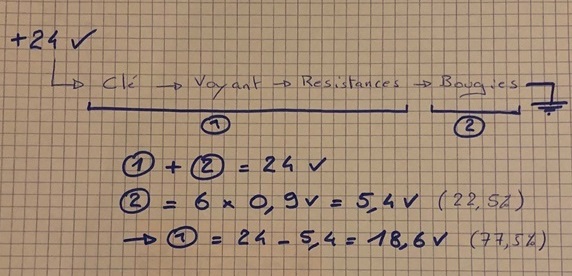 +24 V
↳ Clé → Voyant → Resistances → Bougies
① ②
① + ② = 24 V
② = 6 x 0,9 V = 5,4 V (22,5%)
→ ① = 24 - 5,4 = 18,6 V (77,5%)